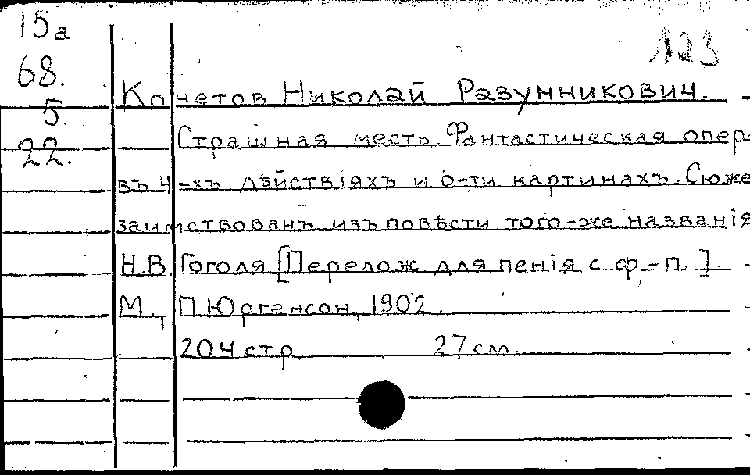 15а
123
68.
5.
22.
Кочетов Николай Разумникович.
Страшная месть. Фантастическая опера
въ 4-хъ дѣйствіяхъ и 6-ти картинахъ. Сюже
заимствованъ изъ повѣсти того-же названія
Н.В. Гоголя [Перелож для пенія с ф.-п.]
М., П. Юргенсон, 1902.
204 стр. 27 см.